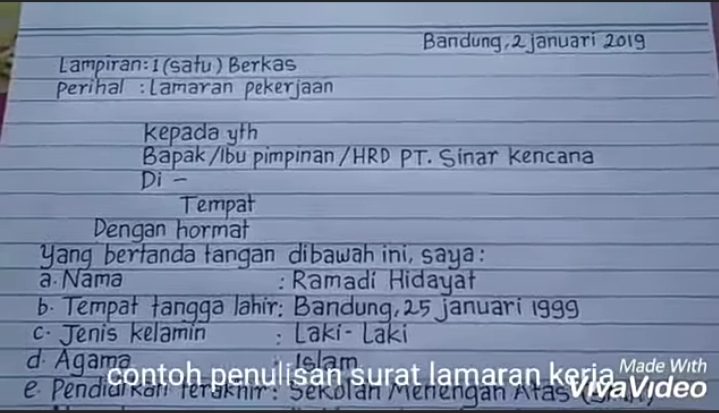 Bandung, 2 januari 2019
Lampiran: 1 (satu) Berkas
Perihal : Lamaran pekerjaan
Kepada yth
Bapak/Ibu pimpinan/HRD PT. Sinar Kencana
Di -
Tempat
Dengan hormat
Yang bertanda tangan dibawah ini, saya:
a. Nama : Ramadi Hidayat
b. Tempat tangga lahir: Bandung, 25 januari 1999
c. Jenis kelamin : Laki-Laki
d. Agama : Islam
contoh penulisan surat lamaran kerja
Made With
VivaVideo
e. Pendidikan terakhir: Sekolah Menengah Atas